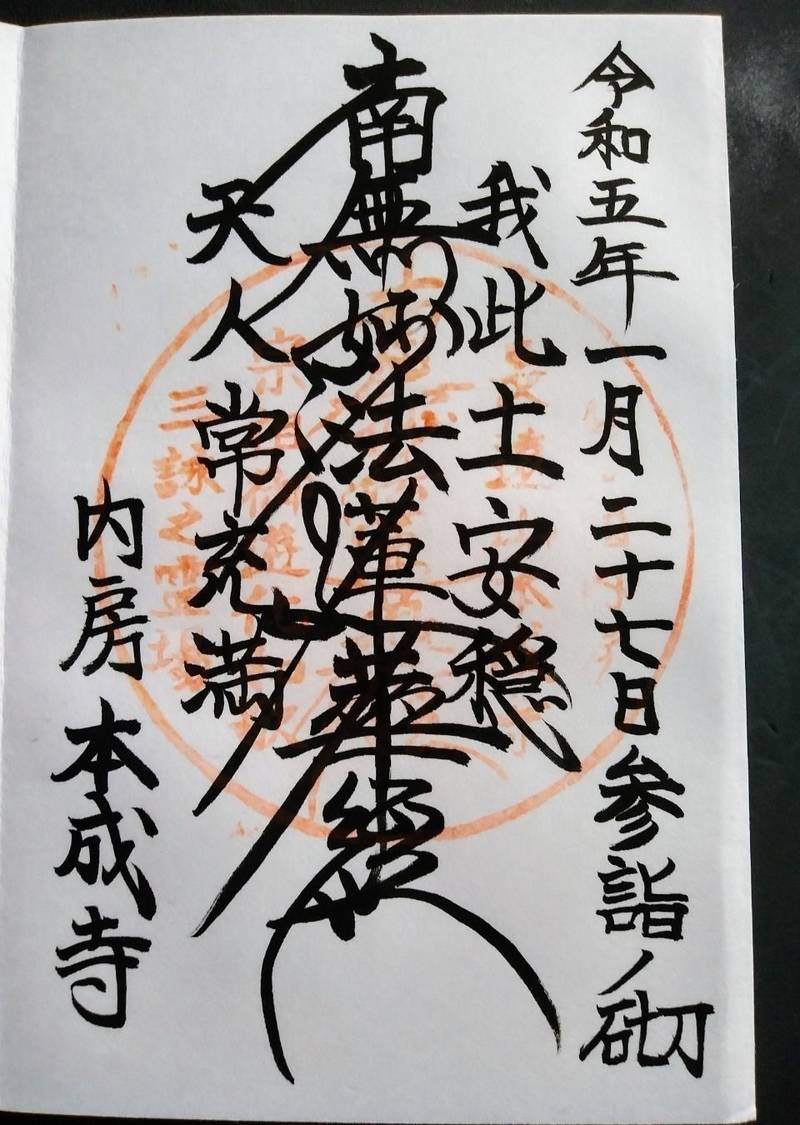 令和五年一月二十七日参詣ノ砌
我此土安穏
南無妙法蓮華経
天人常充満
内房 本成寺
三詠之霊場